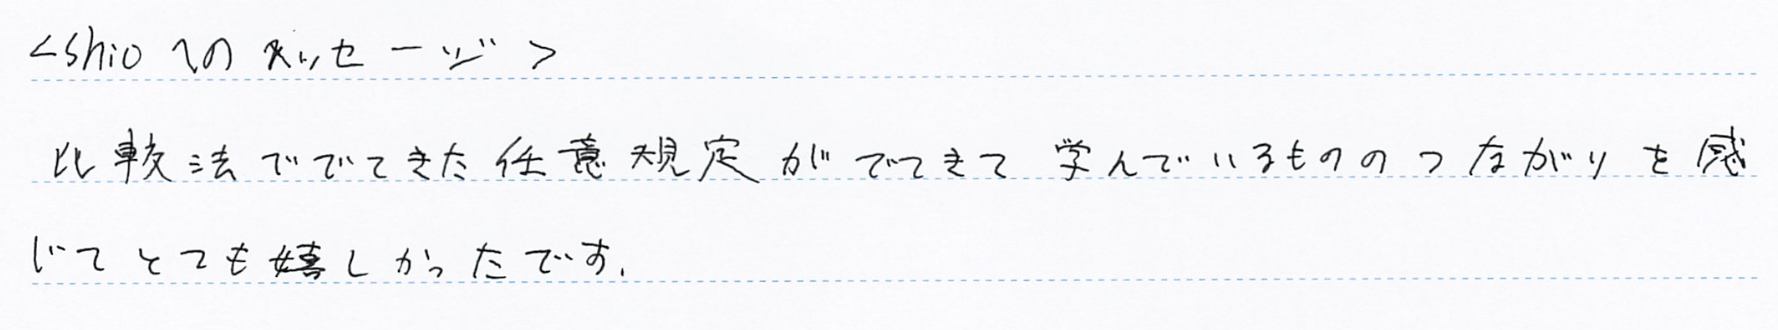 <shioへのメッセージ>
比較法ででてきた任意規定がでてきて学んでいるもののつながりを感
じてとても嬉しかったです.